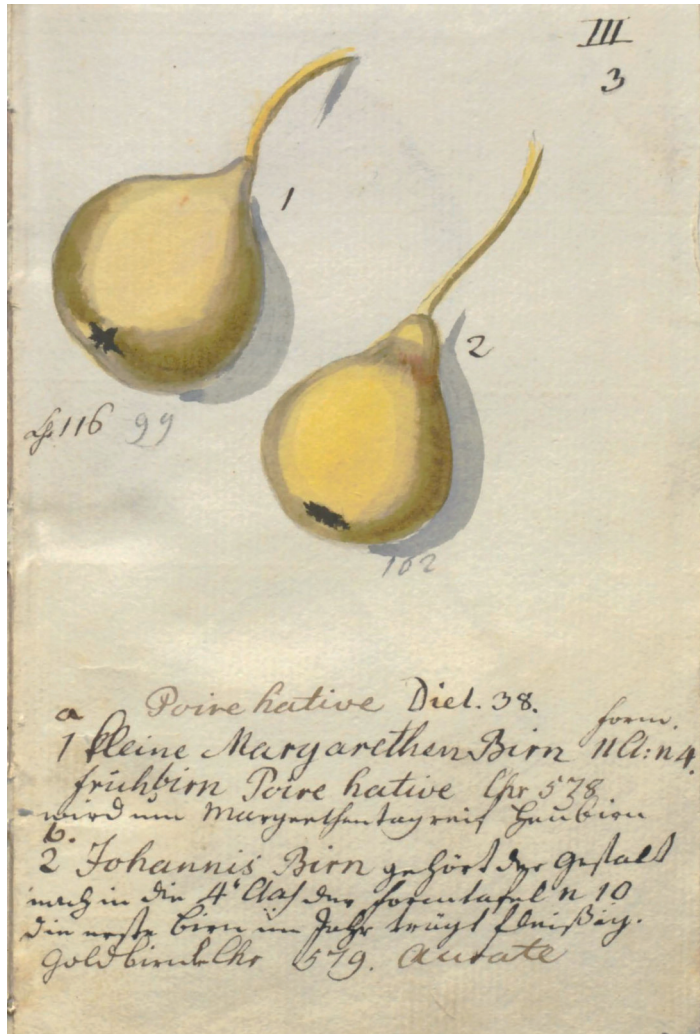 III
3
1
2
116 99
102
Poire hative Diel. 38.
a
form.
1 kleine Margarethen Birn 11 Cl: n 4.
frühbirn Poire hative Chr 578
wird um Margrethentag reif Heubirn
b.
2 Johannis Birn gehört der Gestalt
nach in die 4t Claß der formtafel n 10
die erste birn im Jahr trägt fleißig.
Goldbirn Chr 579. Aurate